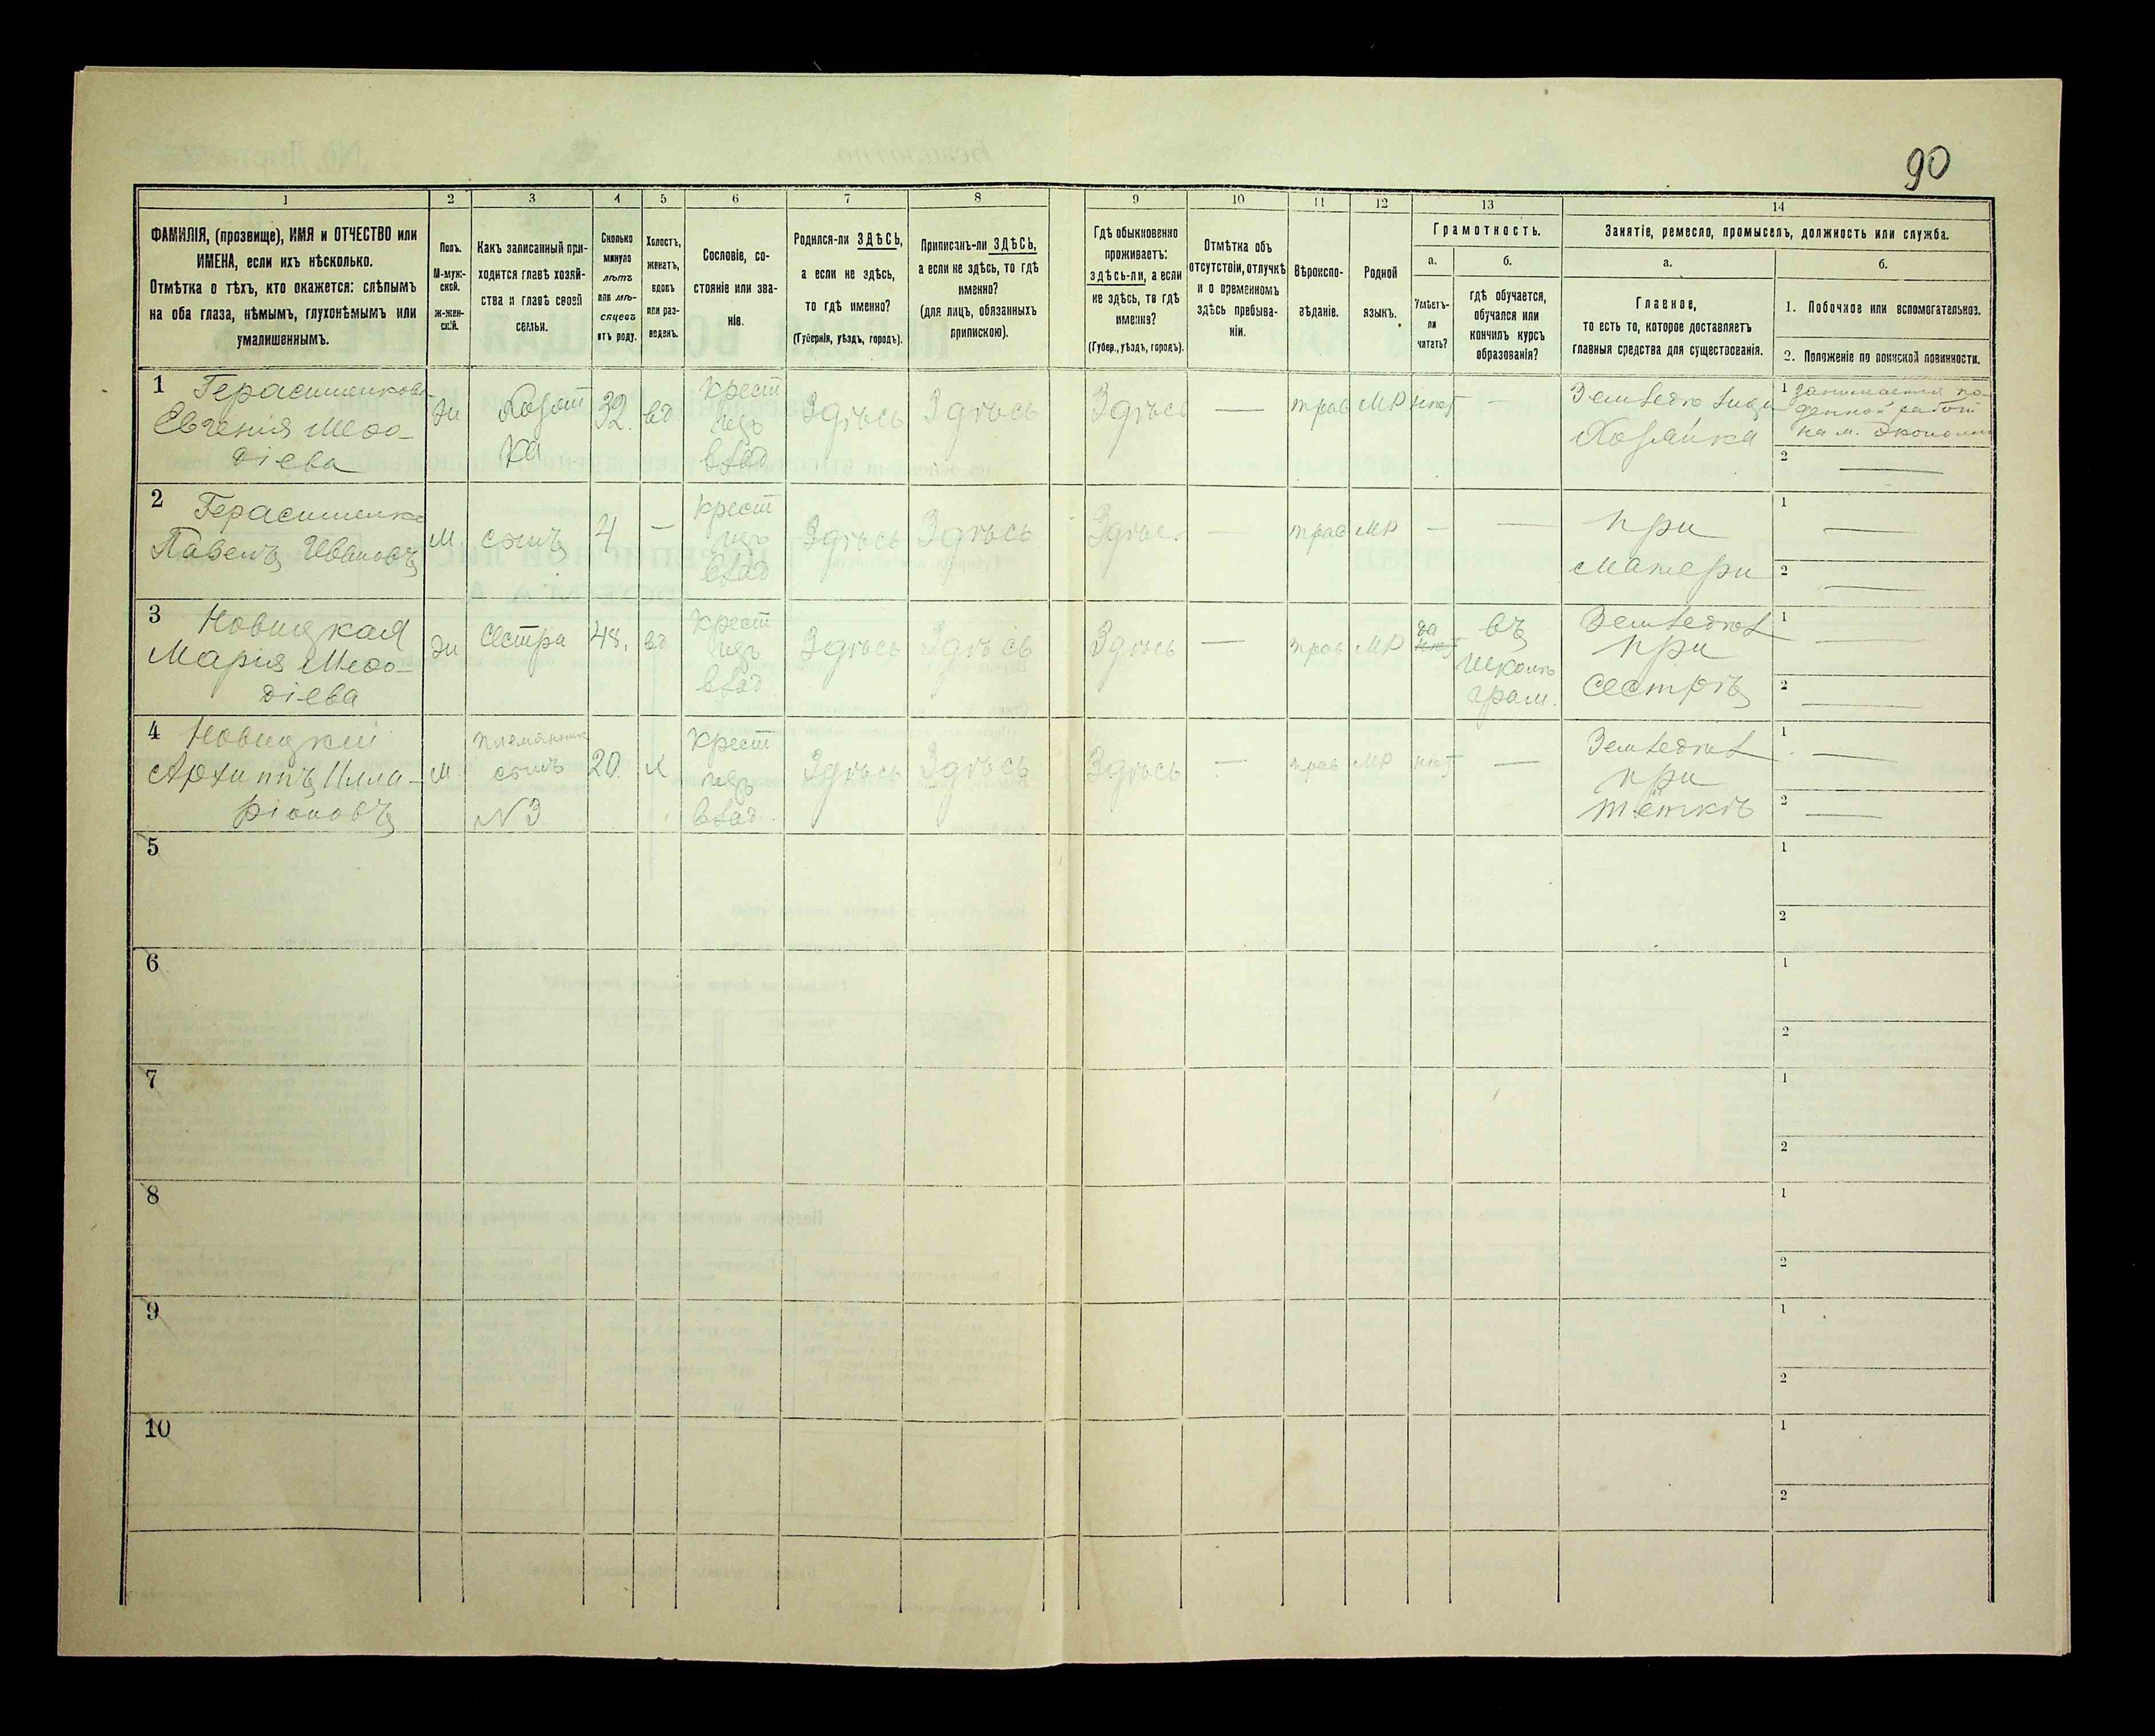 90
1 2 3 4 5 6 7 8 9 10 11 12 13 14
ФАМИЛІЯ, (прозвище), ИМЯ и ОТЧЕСТВО или
ИМЕНА, если ихъ нѣсколько.
Отмѣтка о тѣхъ, кто окажется: слѣпымъ
на оба глаза, нѣмымъ, глухонѣмымъ или
умалишеннымъ.
Полъ.
М-муж-
ской.
ж-жен-
скій.
Какъ записанный при-
ходится главѣ хозяй-
ства и главѣ своей
семьи.
Сколько
минуло
лѣтъ
или мѣ-
сяцевъ
отъ роду.
Холостъ,
женатъ,
вдовъ
или раз-
веденъ.
Сословіе, со-
стояніе или зва-
ніе.
Родился-ли ЗДѢСЬ,
а если не здѣсь,
то гдѣ именно?
(Губернія, уѣздъ, городъ).
Приписанъ-ли ЗДѢСЬ,
а если не здѣсь, то гдѣ
именно?
(для лицъ, обязанныхъ
припискою).
Гдѣ обыкновенно
проживаетъ:
здѣсь-ли, а если
не здѣсь, то гдѣ
именно?
(Губер., уѣздъ, городъ).
Отмѣтка объ
отсутствіи, отлучкѣ
и о временномъ
здѣсь пребыва-
ніи.
Вѣроиспо-
вѣданіе.
Родной
языкъ.
Грамотность.
а.
Умѣетъ-
ли
читать?
б.
гдѣ обучается,
обучался или
кончилъ курсъ
образованія?
Занятіе, ремесло, промыселъ, должность или служба.
а.
Главное,
то есть то, которое доставляетъ
главныя средства для существованія.
б.
1. Побочное или вспомогательное.
2. Положеніе по воинской повинности.
1 Герасименкова
Евгенія Мефо-
діева
жи
Хозяй
ка
32.
вд
Крест
изъ
влад
Здѣсь
Здѣсь
Здѣсь
—
прав
МР
нѣт
—
Хозяйка
1 Занимается по-
денной работ
2 —
2 Герасименко
Павелъ Ивановъ
м.
сынъ
4
—
Крест
изъ
влад
Здѣсь
Здѣсь
Здѣсь
—
прав
МР
—
—
при
матери
1 —
2 —
3 Новицкая
Марія Мефо-
діева
жи
сестра
48.
вд
Крест
изъ
влад
Здѣсь
Здѣсь
Здѣсь
—
прав
МР
да
нѣт
въ
школѣ
грам.
Земледѣл
при
сестрѣ
1 —
2 —
4 Новицкій
Архипъ Илла-
ріоновъ
м.
племянник
сынъ
N 3
20.
х
Крест
изъ
влад.
Здѣсь
Здѣсь
Здѣсь
—
прав
МР
нѣт
—
Земледѣл
при
тёткѣ
1 —
2 —
5
1
2
6
1
2
7
1
2
8
1
2
9
1
2
10
1
2